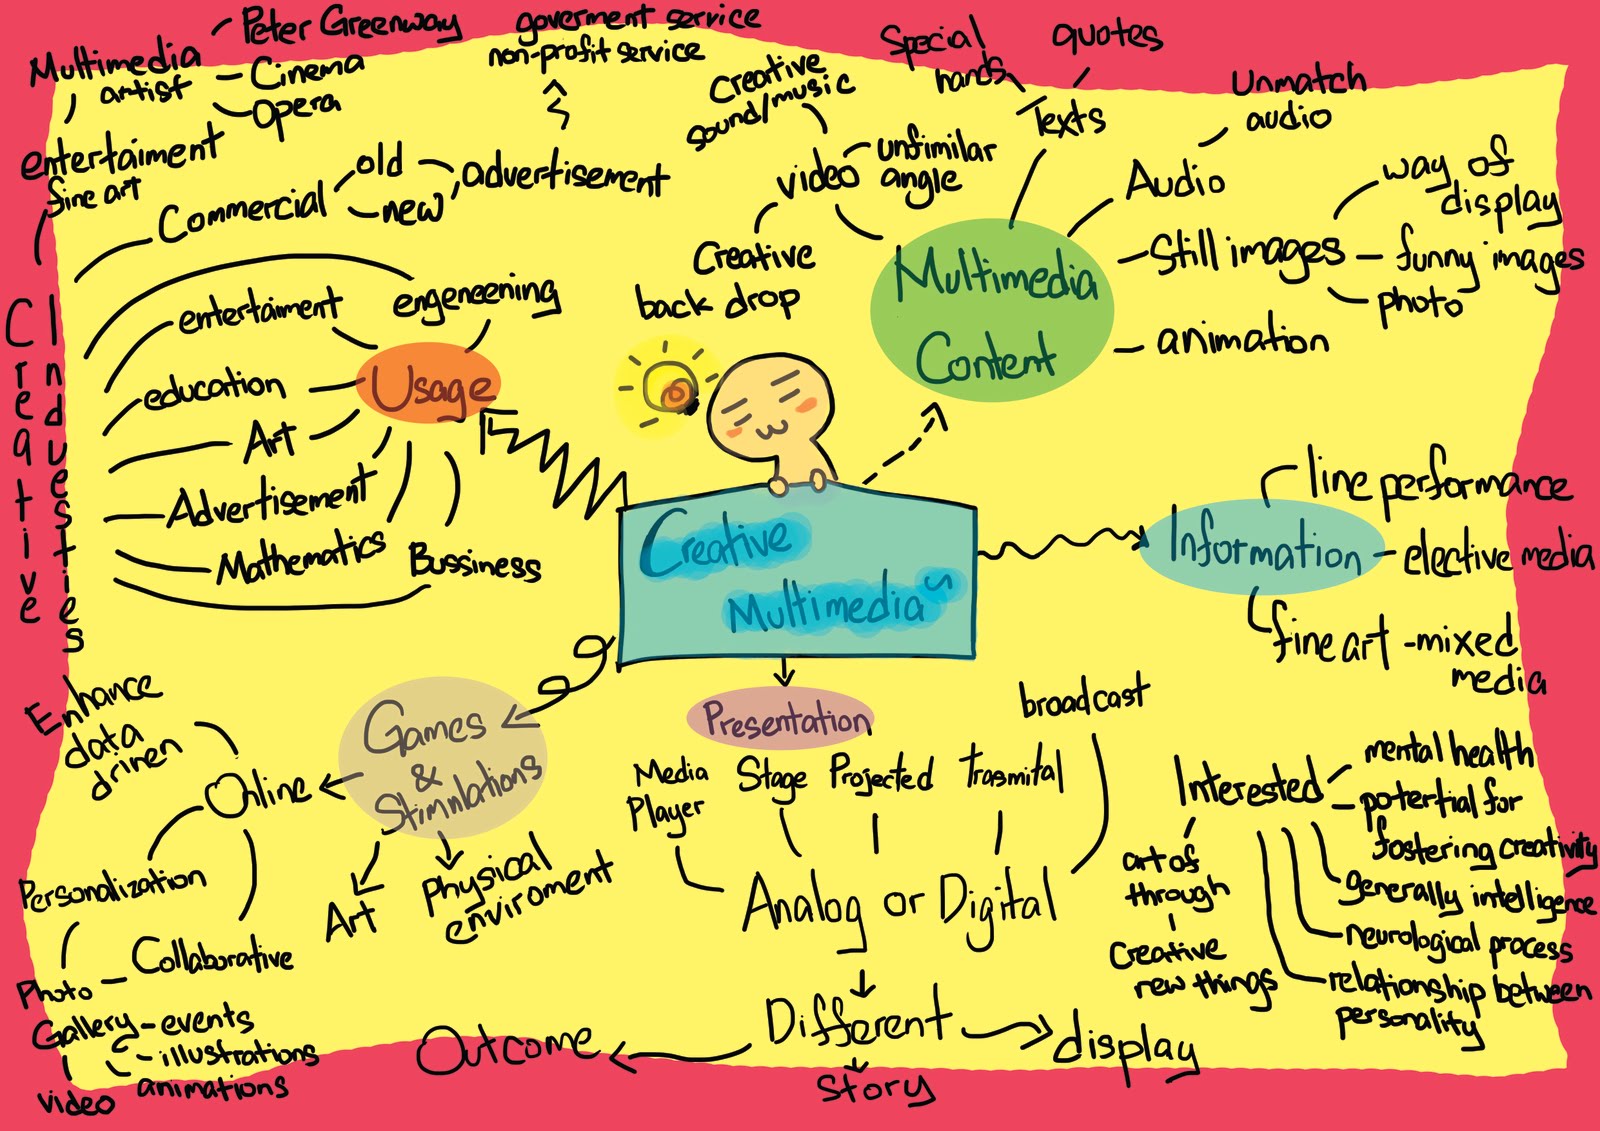 Multimedia
artist
Peter Greenway
Cinema
Opera
entertaiment
fine art
Commercial
old
new
advertisement
goverment service
non-profit service
Creative
Industies
entertaiment
engeneening
education
Art
Advertisement
Mathematics
Bussiness
Usage
Creative
sound/music
video
unfimilar
angle
Creative
back drop
Special
hands
quotes
Texts
Unmatch
audio
Audio
Still images
way of
display
funny images
photo
animation
Multimedia
Content
Creative
Multimedia
Information
line performance
elective media
fine art - mixed
media
Games
&
Stimulations
Online
Enhance
data
driven
Personalization
Collaborative
Photo
Gallery - events
- illustrations
animations
video
Art
Physical
enviroment
Presentation
Media
Player
Stage
Projected
Trasmital
broadcast
Analog or Digital
Different
display
Story
Outcome
Interested
mental health
potential for
fostering creativity
generally intelligence
neurological process
relationship between
personality
art of
through
Creative
new things